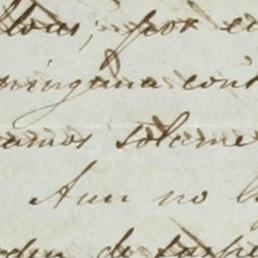 llous; por e
ninguna cont
amos solame
Aun no l
rden de